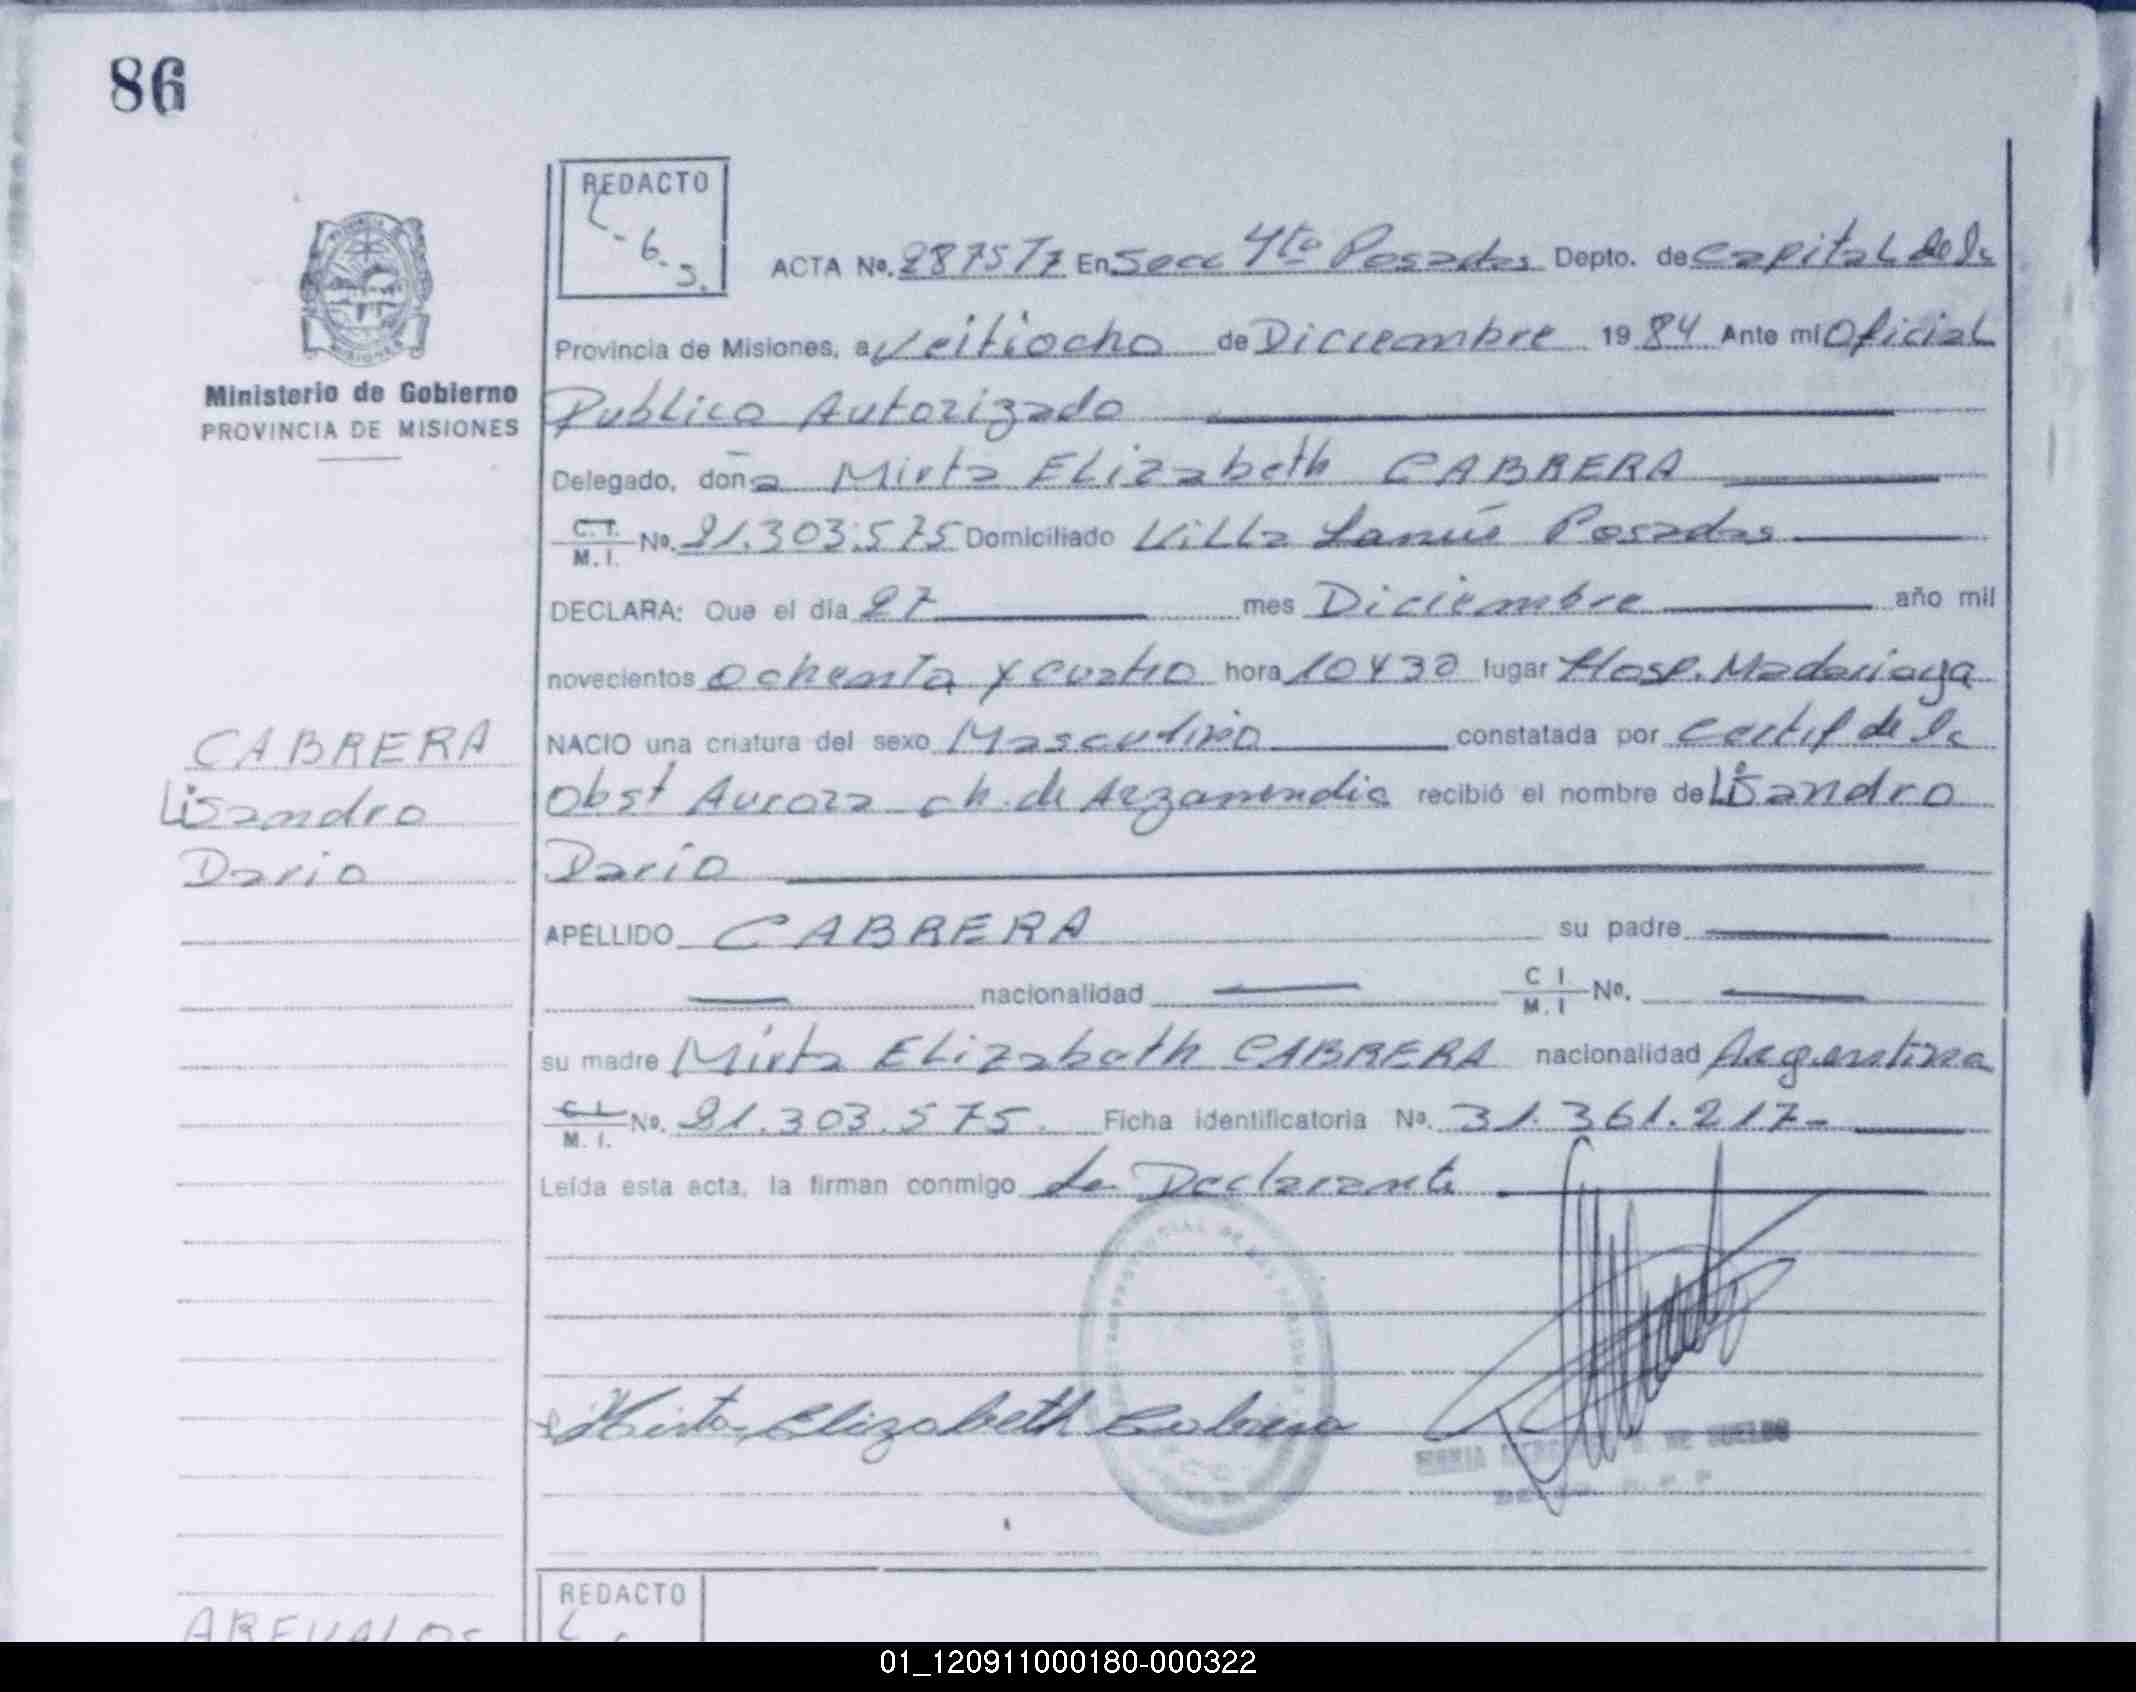 86
REDACTO
L-6-S.
ACTA No. 2875 T7 En Secc 4ta Posadas Depto. de Capital de la
Provincia de Misiones, a Veitiocho de Diciembre 1984 Ante mí Oficial
Ministerio de Gobierno
PROVINCIA DE MISIONES
Publico Autorizado
Delegado, doña Mirta ELizabeth CABRERA
C.I. M.I. No. 21.303.575 Domiciliado Villa Lanús Posadas
DECLARA: Que el día 27 mes Diciembre año mil
novecientos ochenta y cuatro hora 10 y 30 lugar Hosp. Madariaga
CABRERA
Lisandro
Dario
NACIO una criatura del sexo Masculino constatada por certif de la
Obst Aurora ch. de recibió el nombre de Lisandro
Darío
APELLIDO CABRERA su padre
nacionalidad C I M.I No.
su madre Mirta ELizabeth CABRERA nacionalidad Argentina
C.I. M.I. No. 21.303.575. Ficha identificatoria No. 31.361.217-
Leída esta acta, la firman conmigo la Declarante
Mirta Elizabeth Cabrera
REDACTO
AREVALOS
01_120911000180-000322